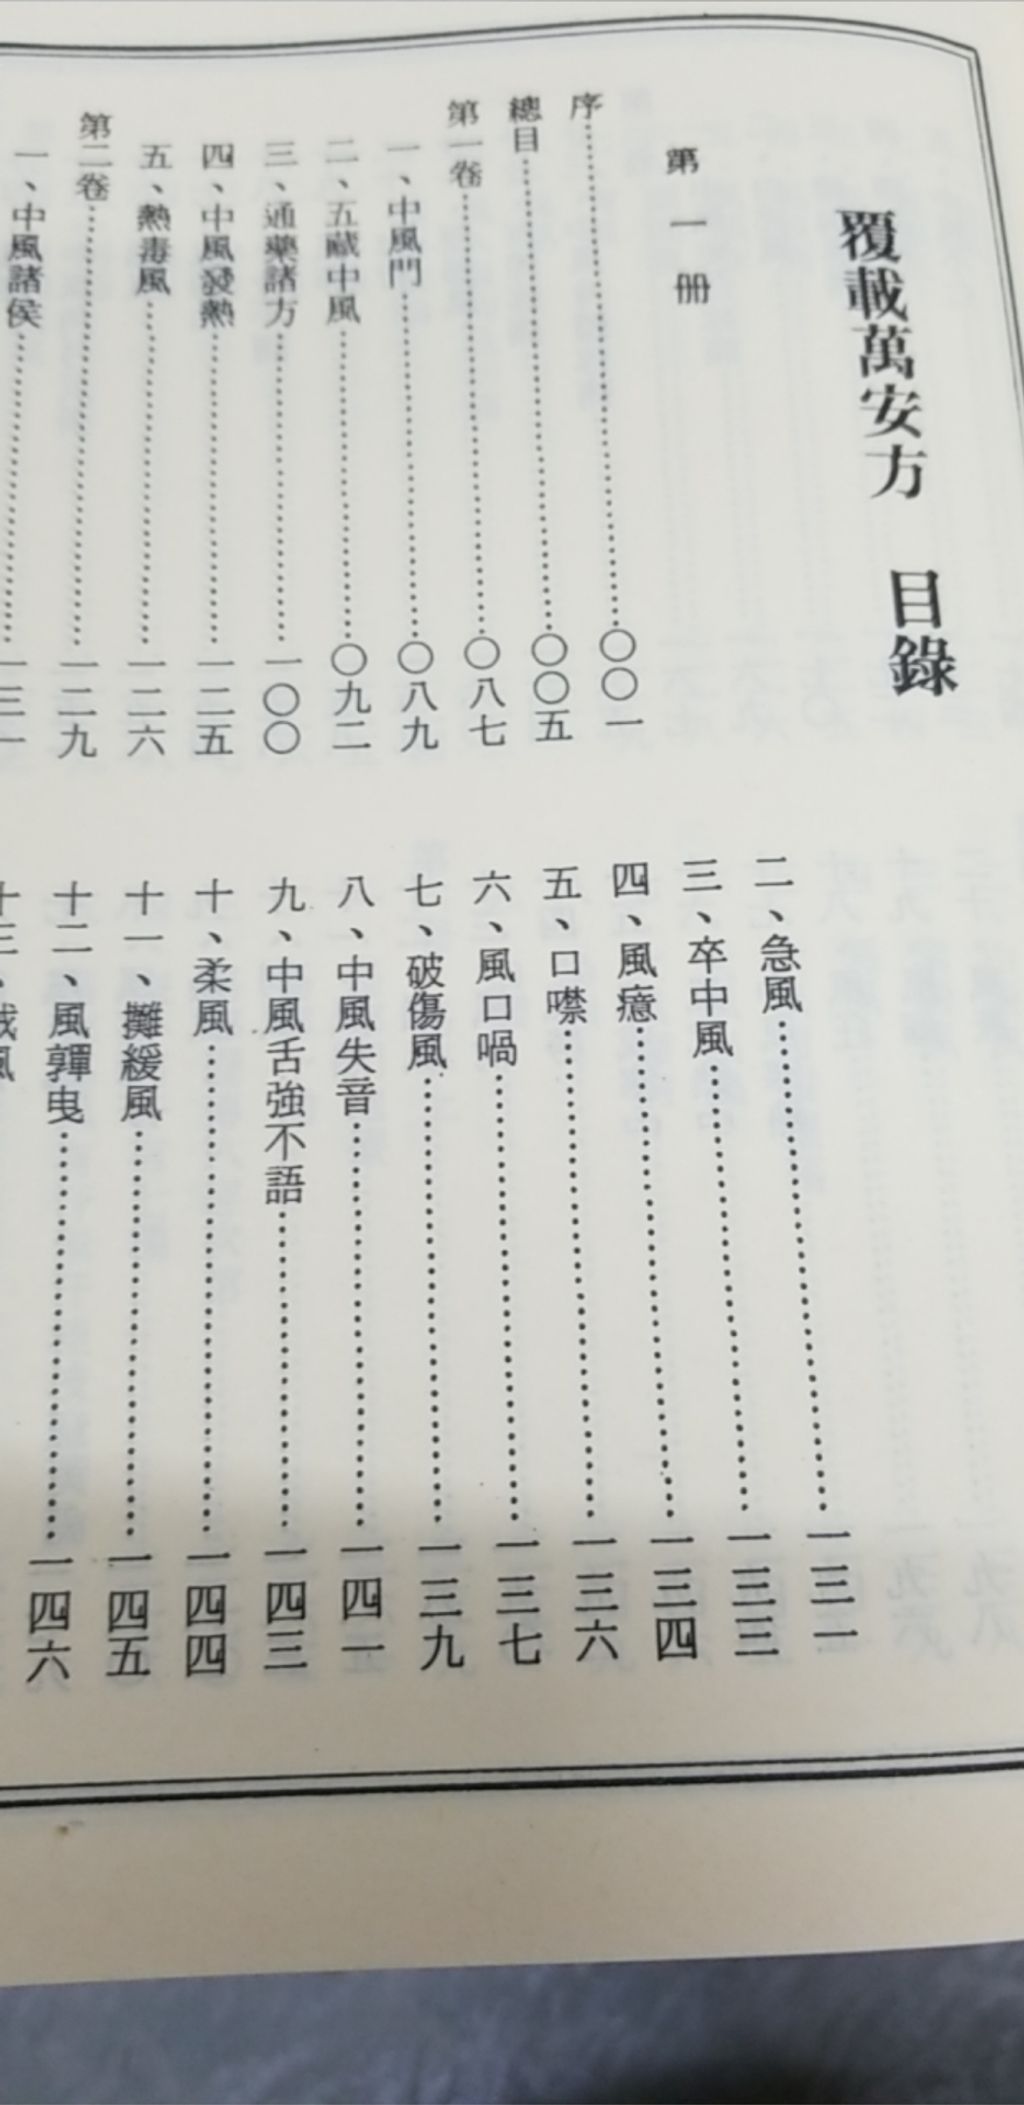 覆載萬安方 目錄
第一册
序……〇〇一
總目……〇〇五
第一卷……〇八七
一、中風門……〇八九
二、五藏中風……〇九二
三、通藥諸方……一〇〇
四、中風發熱……一二五
五、熱毒風……一二六
第二卷……一二九
一、中風諸侯……一三一
二、急風……一三一
三、卒中風……一三三
四、風癔……一三四
五、口噤……一三六
六、風口喎……一三七
七、破傷風……一三九
八、中風失音……一四一
九、中風舌強不語……一四三
十、柔風……一四四
十一、攤緩風……一四五
十二、風嚲曳……一四六
十三、